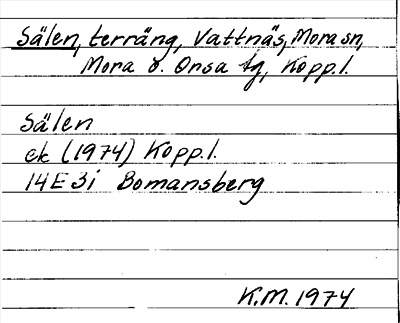 Sälen, terräng, Vattnäs, Mora sn,
Mora o. Orsa tg, Kopp.l.
Sälen
ek (1974) Kopp.l.
14E3i Bomansberg
K.M. 1974